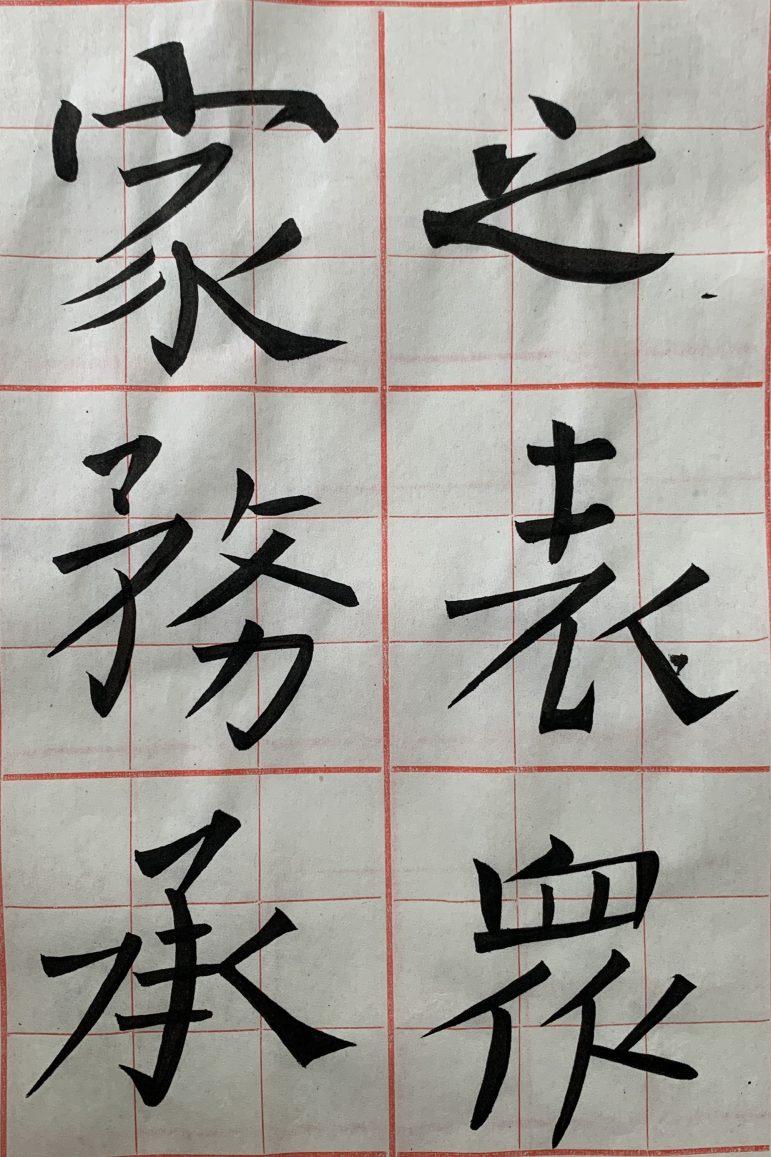 之表眾
家務承